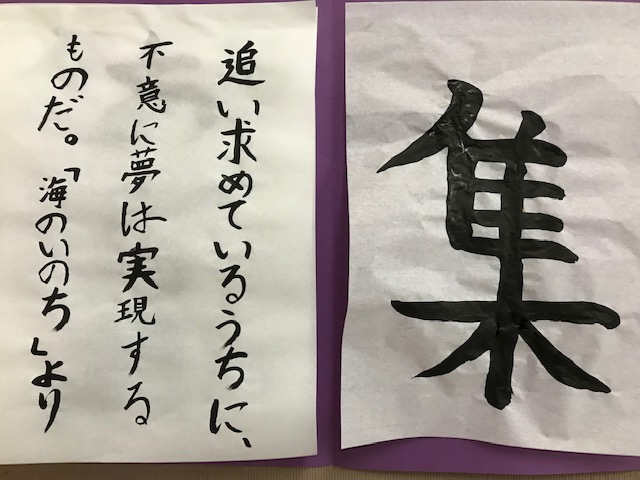 集
追い求めているうちに、
不意に夢は実現する
ものだ。「海のいのち」より